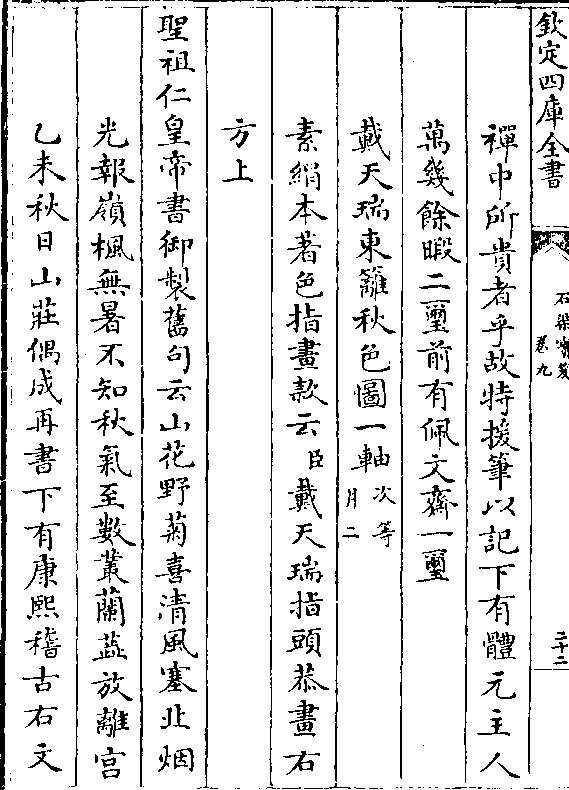 欽定四庫全書
石渠寶笈
卷九
二十二
禪中所貴者乎故特援筆以記下有體元主人
萬幾餘暇二璽前有佩文齋一璽
戴天瑞東籬秋色圖一軸次等
月二
素絹本著色指畫款云臣戴天瑞指頭恭畫右
方上
聖祖仁皇帝書御製舊句云山花野菊喜清風塞北烟
光報嶺楓無暑不知秋氣至數叢蘭蕋放離宮
乙未秋日山莊偶成再書下有康熙稽古右文